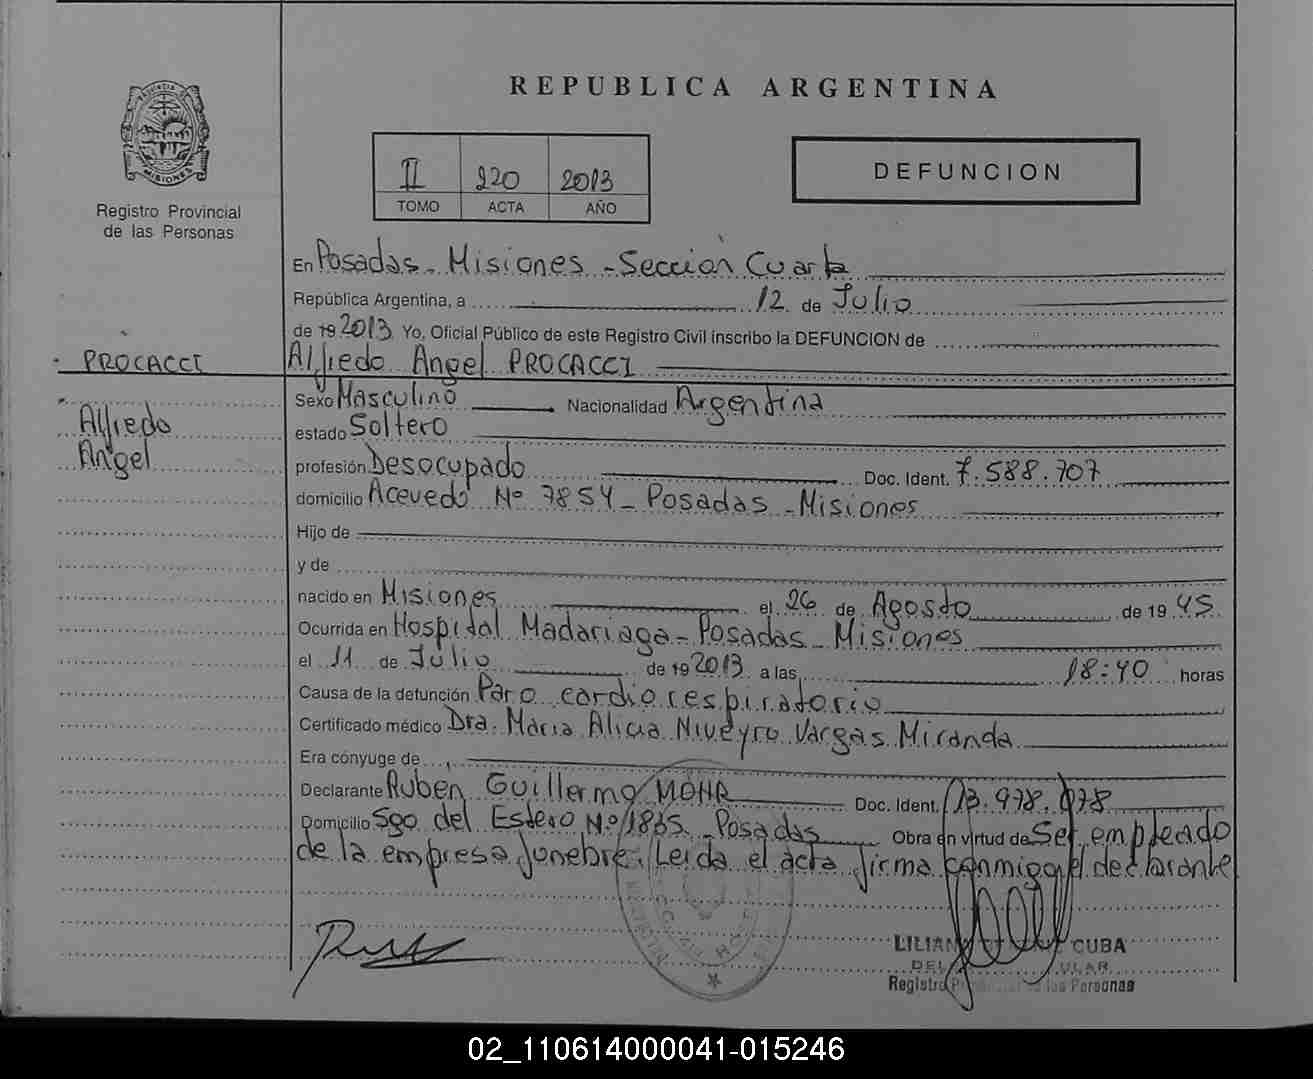 REPUBLICA ARGENTINA
PROVINCIA DE
MISIONES
Registro Provincial
de las Personas
II 220 2013
TOMO ACTA AÑO
DEFUNCION
En Posadas - Misiones - Sección Cuarta
República Argentina, a 12 de Julio
de 19 2013 Yo, Oficial Público de este Registro Civil inscribo la DEFUNCION de
PROCACCI
Alfredo Angel PROCACCI
Alfredo
Angel
Sexo Masculino Nacionalidad Argentina
estado Soltero
profesión Desocupado Doc. Ident. 7.588.707
domicilio Acevedo Nº 7854 - Posadas - Misiones
Hijo de
y de
nacido en Misiones el 26 de Agosto de 19 45
Ocurrida en Hospital Madariaga - Posadas - Misiones
el 11 de Julio de 19 2013 a las 18:40 horas
Causa de la defunción Paro cardiorespiratorio
Certificado médico Dra. Maria Alicia Niveyro Vargas Miranda
Era cónyuge de
Declarante Ruben Guillermo MOHR Doc. Ident. 13.978.078
Domicilio Sgo del Estero Nº 1835 - Posadas Obra en virtud de Ser empleado
de la empresa funebre. Leida el acta firma conmigo el declarante
LILIAN CUBA
Registro de las Personas
02_110614000041-015246